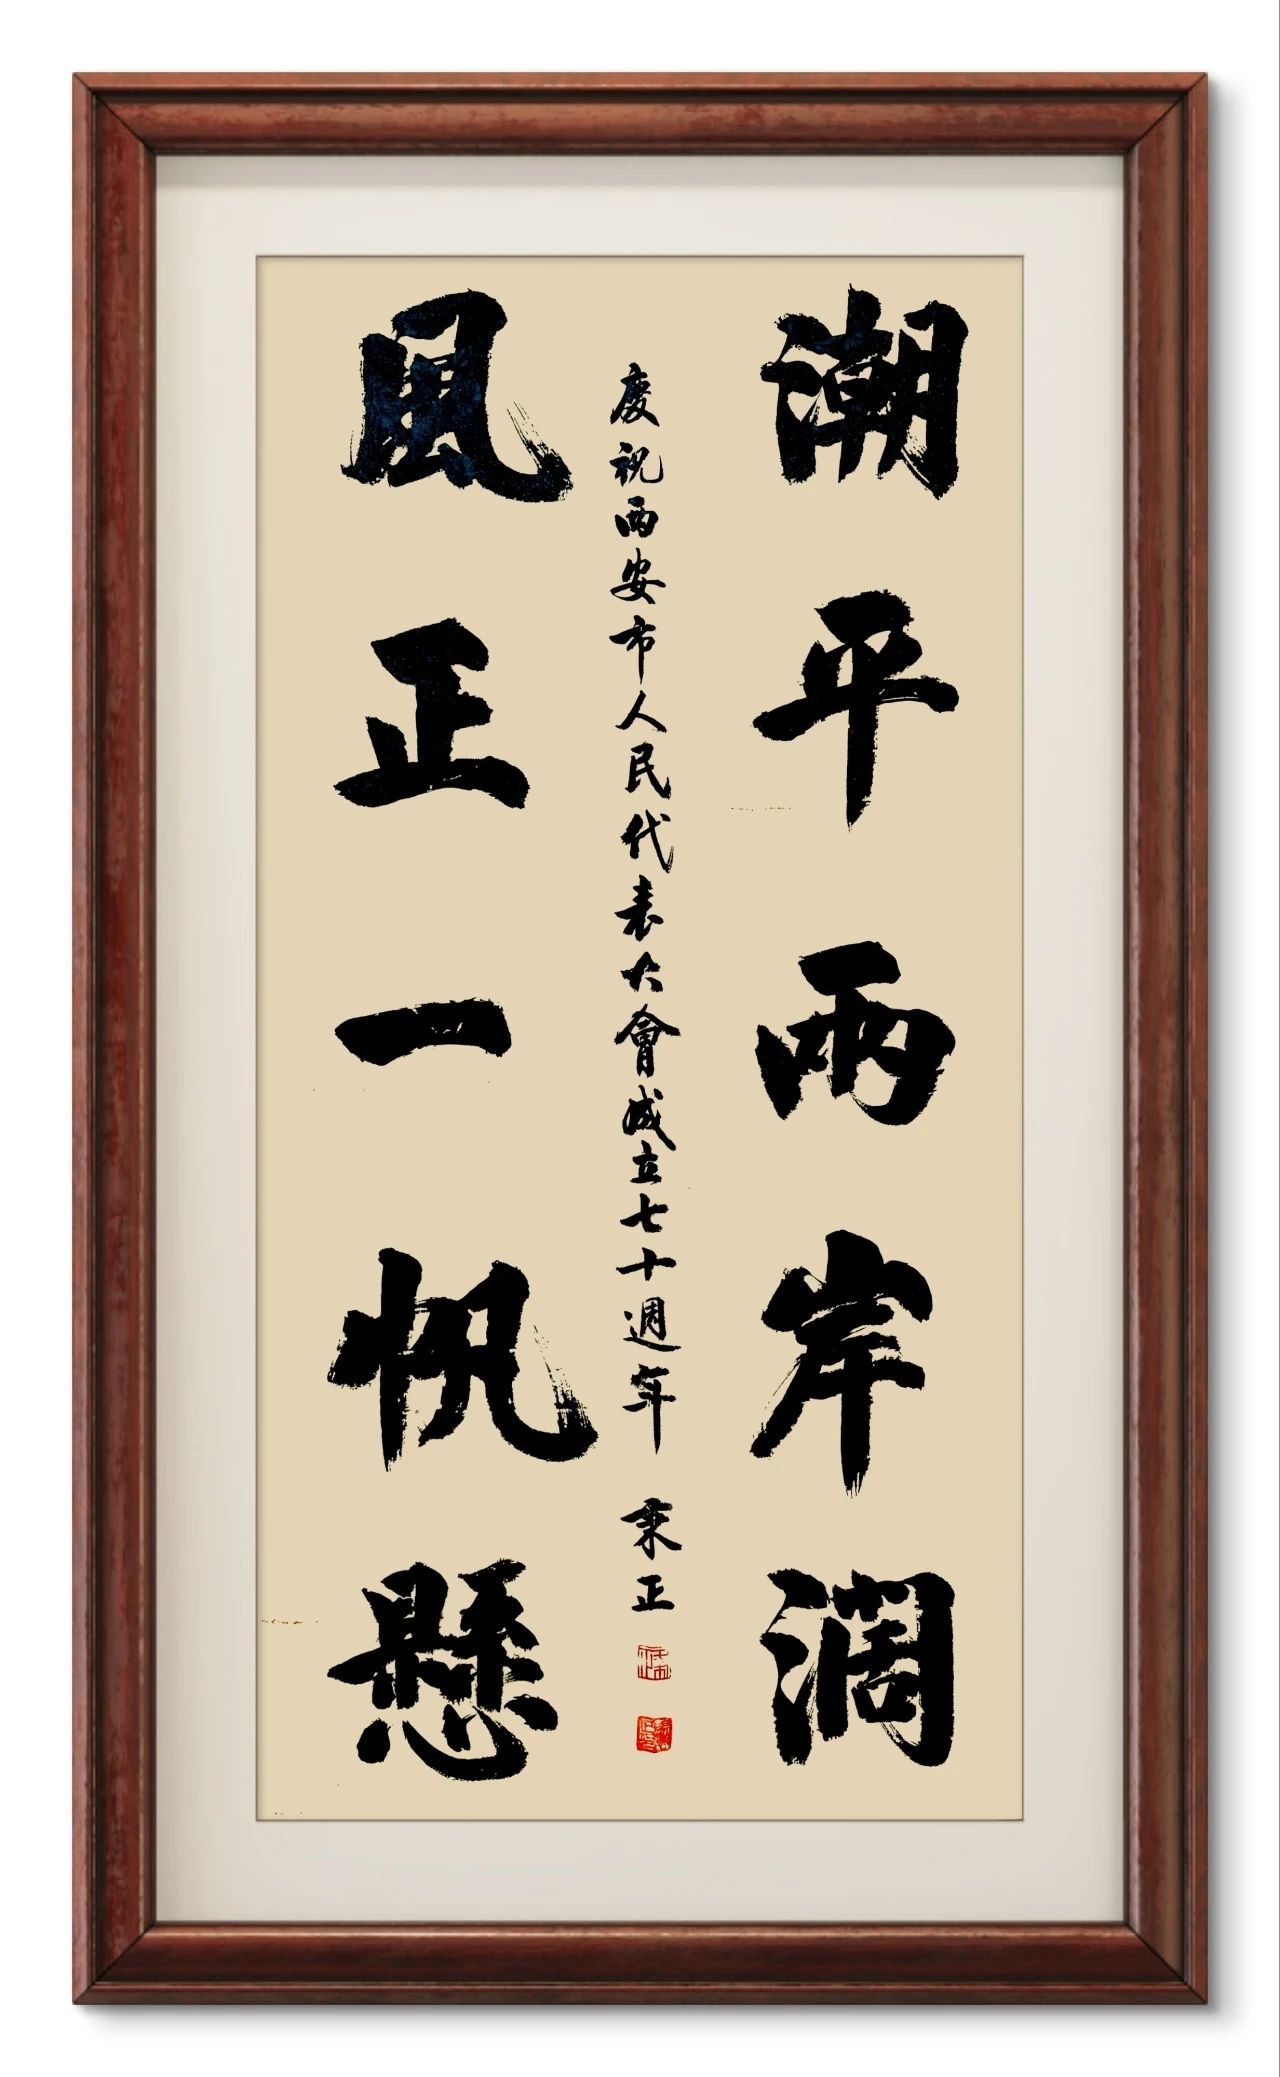 潮平兩岸闊
風正一帆懸
慶祝西安市人民代表大會成立七十週年 秉正